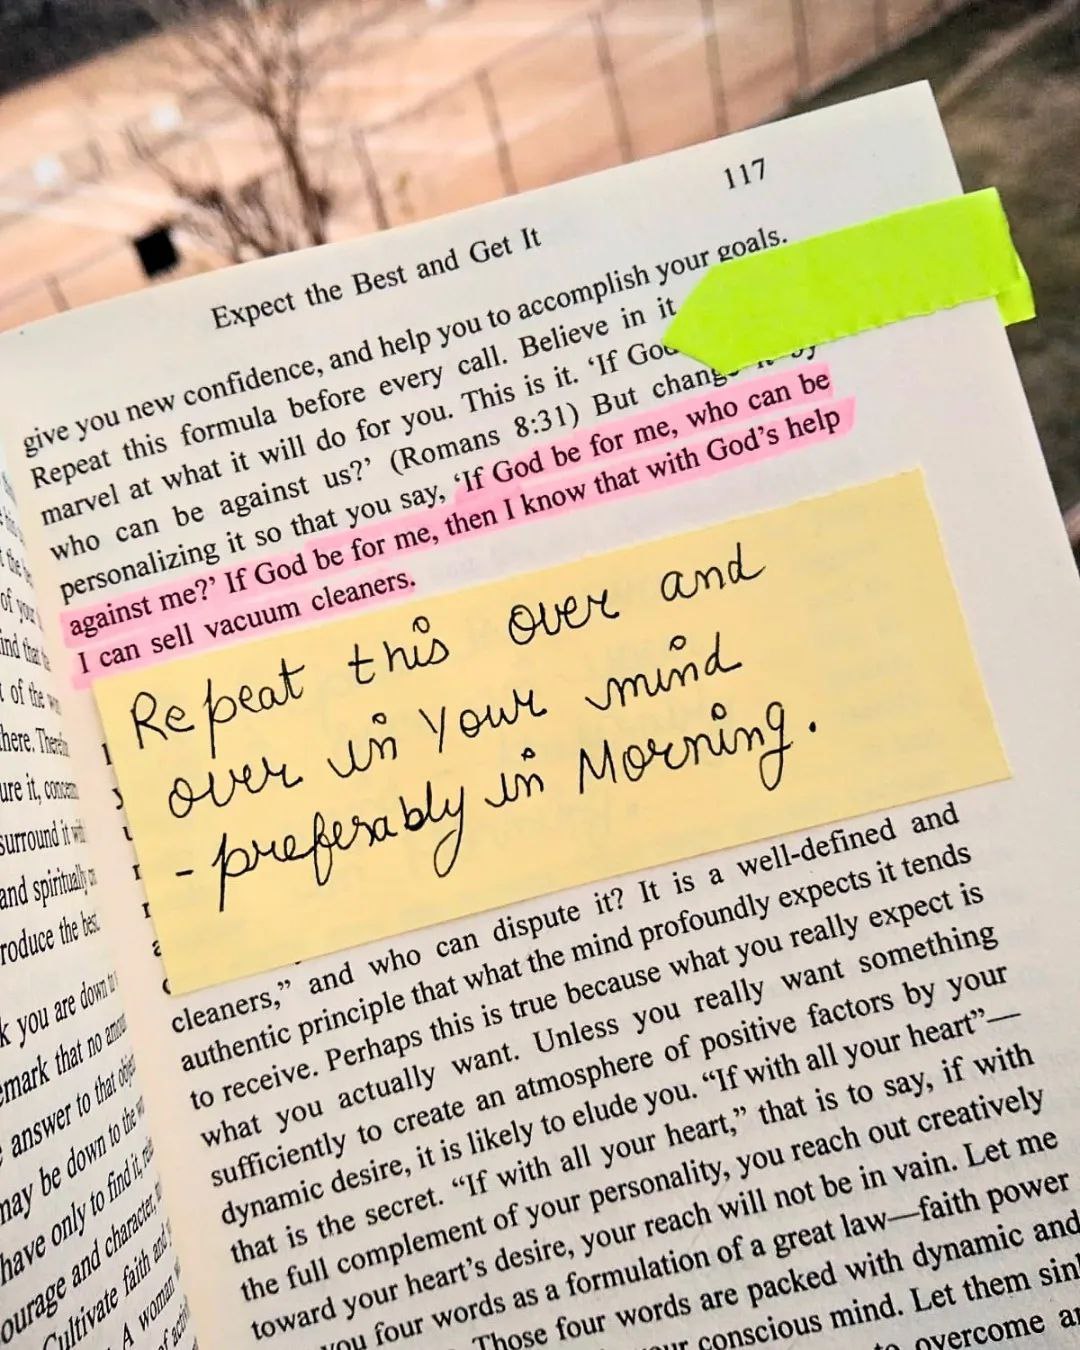 117
Expect the Best and Get It
give you new confidence, and help you to accomplish your goals.
Repeat this formula before every call. Believe in it
marvel at what it will do for you. This is it. 'If God
who can be against us?' (Romans 8:31) But change it by
personalizing it so that you say, 'If God be for me, who can be
against me?' If God be for me, then I know that with God's help
I can sell vacuum cleaners.
Repeat this over and
over in Your mind
- preferably in Morning.
cleaners," and who can dispute it? It is a well-defined and
authentic principle that what the mind profoundly expects it tends
to receive. Perhaps this is true because what you really expect is
what you actually want. Unless you really want something
sufficiently to create an atmosphere of positive factors by your
dynamic desire, it is likely to elude you. "If with all your heart"—
that is the secret. "If with all your heart," that is to say, if with
the full complement of your personality, you reach out creatively
toward your heart's desire, your reach will not be in vain. Let me
you four words as a formulation of a great law—faith power
Those four words are packed with dynamic and
conscious mind. Let them
overcome
of the
there.
ure it,
surround it
and spiritually
roduce the best.
you are down
emark that no
answer to that
may be down to the
have only to find it,
ourage and character,
Cultivate faith and
A woman